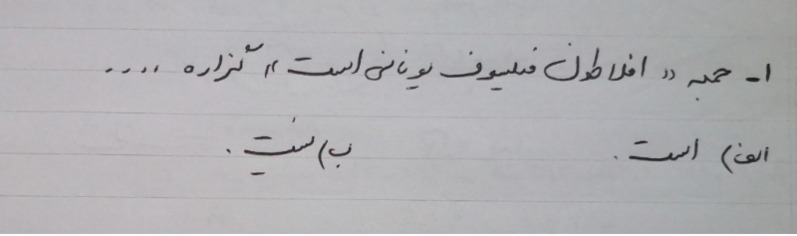 ۱- جمله « افلاطون فیلسوف یونانی است » گزاره ....
الف) است. ب) نیست.